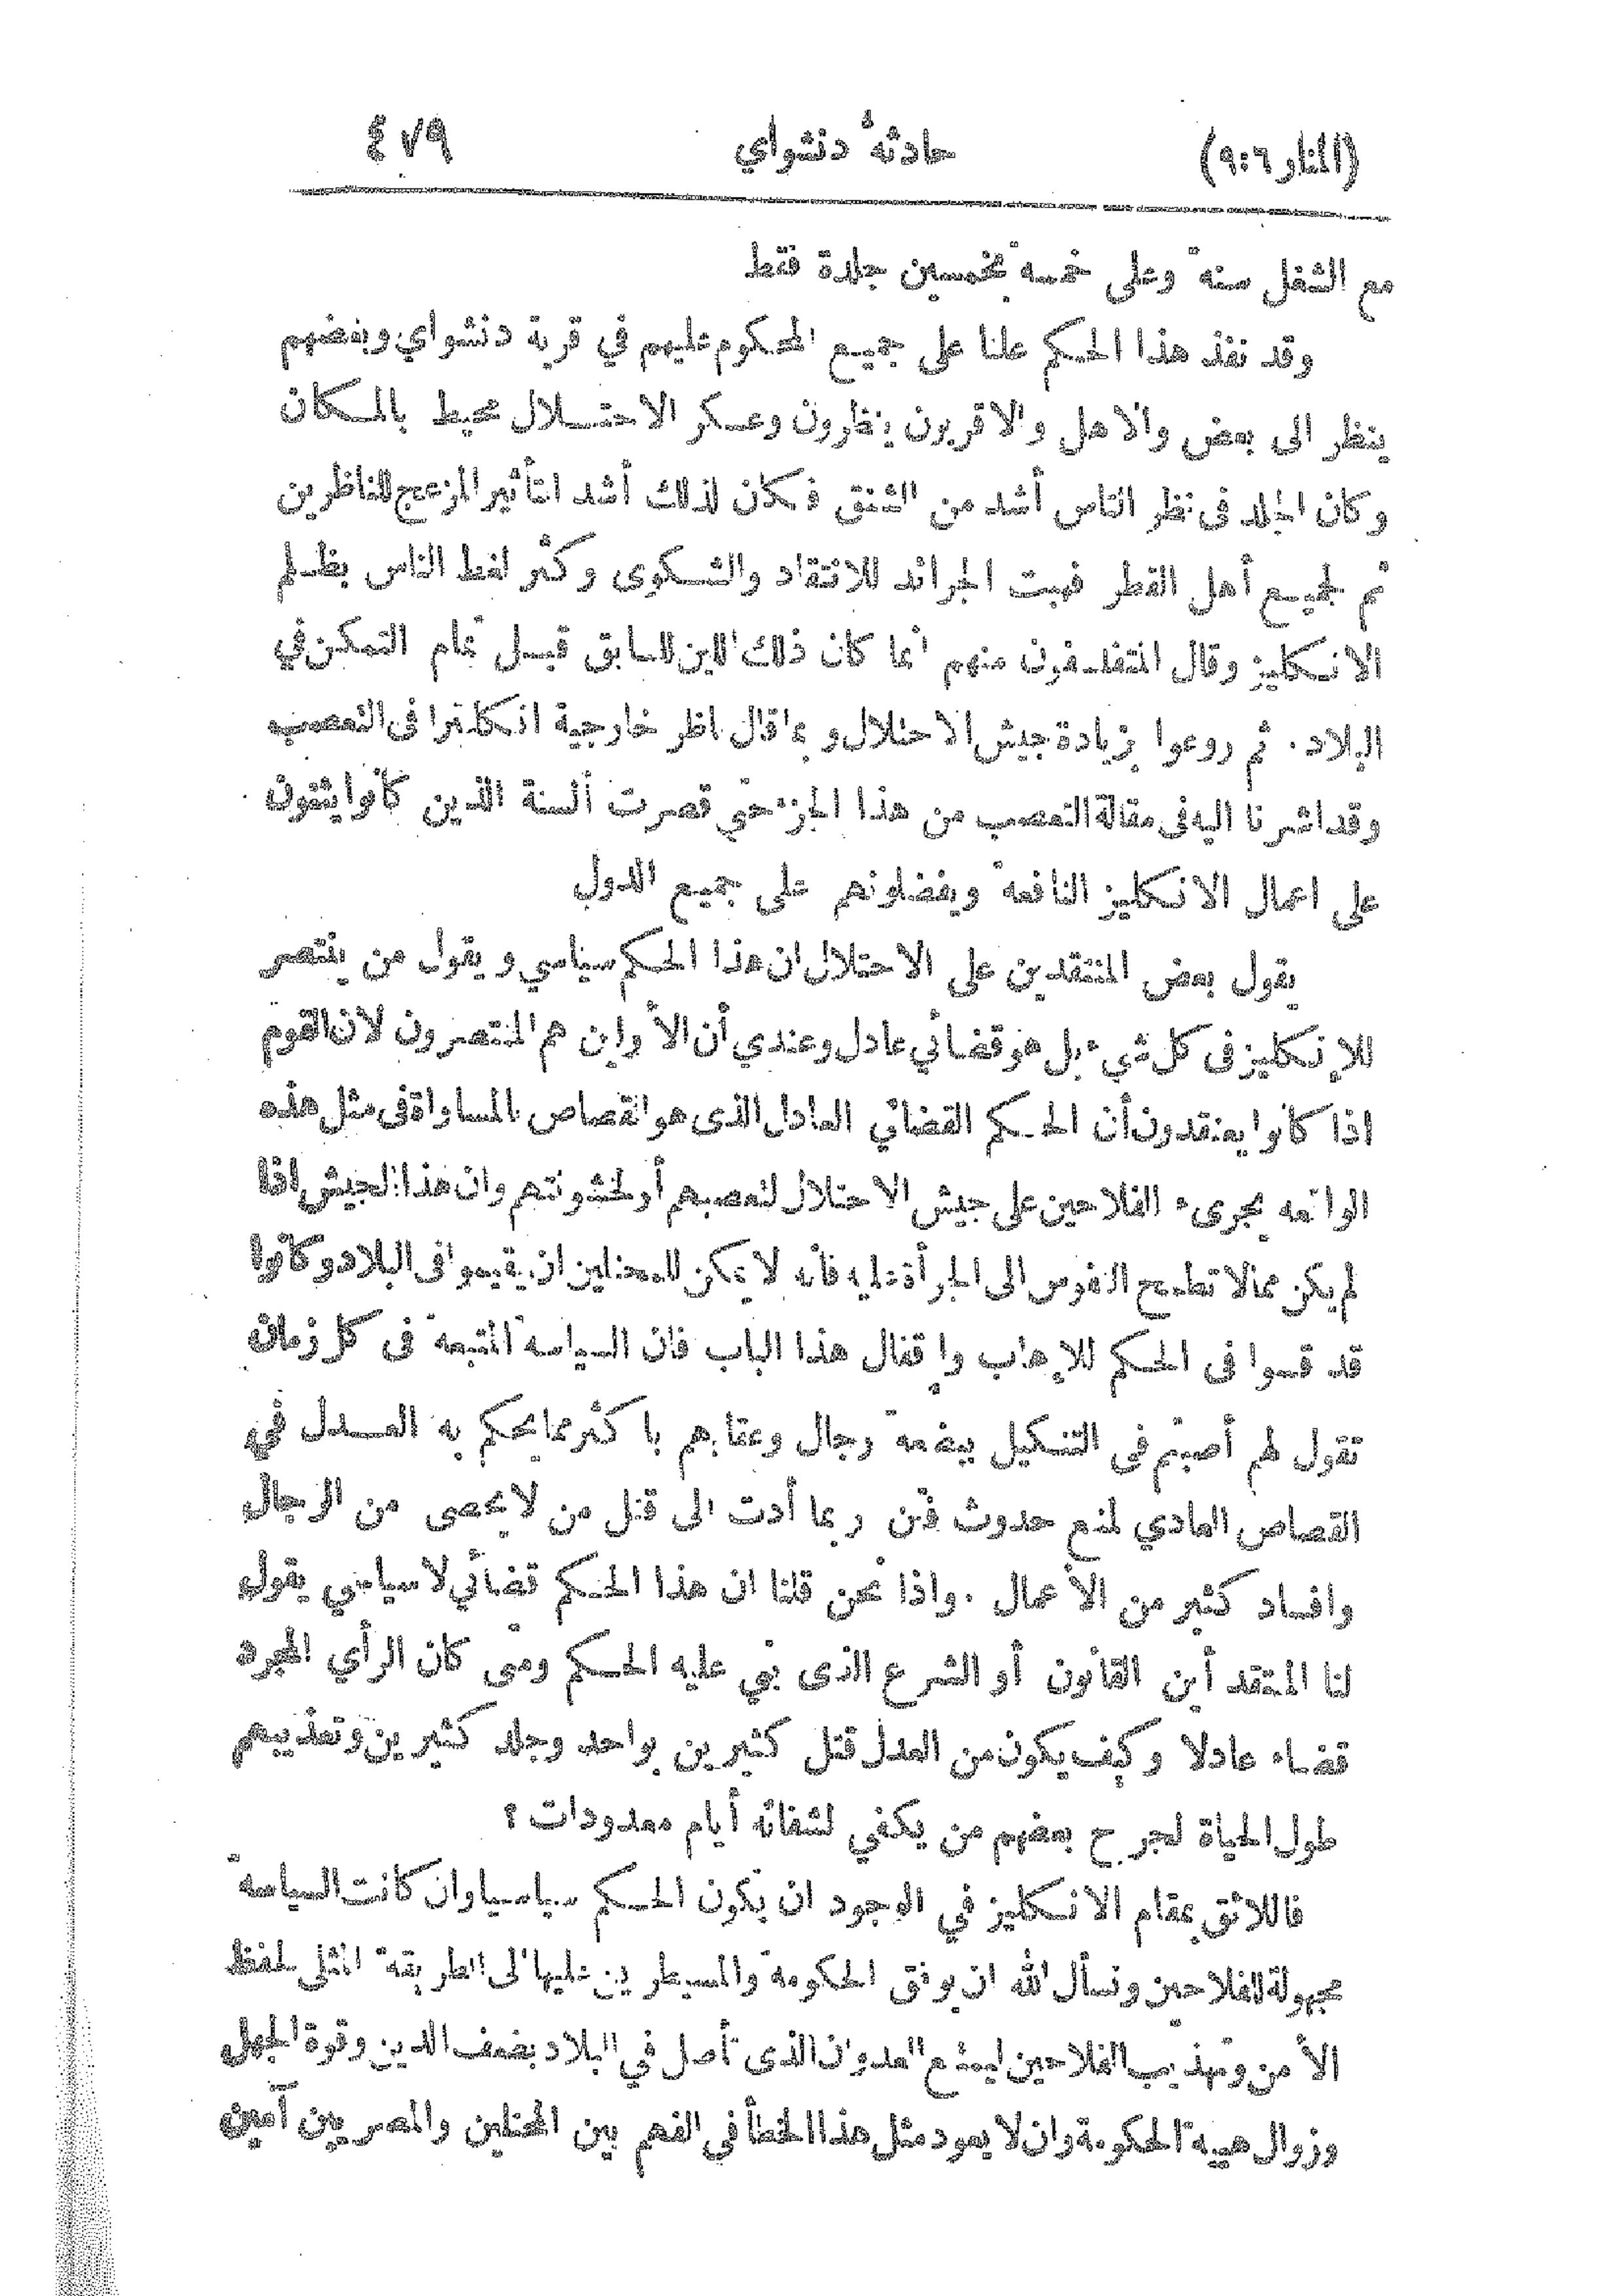 (المنار ٦:٩)
حادثة دنشواي
٤٧٩
مع الشغل سنة وعلى خمسة بخمسين جلدة فقط
وقد نفذ هذا الحكم علنا على جميع المحكوم عليهم في قرية دنشواي وبعضهم
ينظر الى بعض والاهل والاقربون ينظرون وعسكر الاحتلال محيط بالمكان
وكان الجلد فى نظر الناس أشد من الشنق فكان لذلك أشد التأثير المزعج للناظرين
ثم لجميع أهل القطر فهبت الجرائد للانتقاد والشكوى وكثر لغط الناس بظلم
الانكليز وقال المتفلسفون منهم انما كان ذلك اللين السابق قبل تمام التمكن في
البلاد . ثم روعوا بزيادة جيش الاحتلال وبما قال ناظر خارجية انكلترا فى التعصب
وقد اشرنا اليه فى مقالة التعصب من هذا الجزء حتى قصرت ألسنة الذين كانوا يثنون
على اعمال الانكليز النافعة ويفضلونهم على جميع الدول
يقول بعض المنتقدين على الاحتلال ان هذا الحكم سياسي ويقول من ينتصر
للإنكليز فى كل شيء بل هو قضائي عادل وعندي أن الأولين هم المنتصرون لان القوم
اذا كانوا يعتقدون أن الحكم القضائي العادل الذى هو القصاص بالمساواة فى مثل هذه
الواقعة يجرىء الفلاحين على جيش الاحتلال لتعصبهم أو لخشونتهم وان هذا الجيش اذا
لم يكن ممالا تطمح النفوس الى الجرأة عليه فانه لا يمكن للمحتلين ان يقيموا فى البلاد وكانوا
قد قسوا فى الحكم للإرهاب وإقفال هذا الباب فان السياسة المتبعة فى كل زمان
تقول لهم أصبتم فى التنكيل ببضعة رجال وعقابهم با كثر مما يحكم به العدل في
القصاص العادي لمنع حدوث فتن ربما أدت الى قتل من لا يحصى من الرجال
وافساد كثير من الأعمال . واذا نحن قلنا ان هذا الحكم قضائي لا سياسي يقول
لنا المنتقد أين القانون أو الشرع الذى بني عليه الحكم ومتى كان الرأي المجرد
قضاء عادلا وكيف يكون من العدل قتل كثيرين بواحد وجلد كثيرين وتعذيبهم
طول الحياة لجرح بعضهم من يكفي لشفائه أيام معدودات ؟
فاللائق بمقام الانكليز في الوجود ان يكون الحكم سياسيا وان كانت السياسة
مجهولة للفلاحين ونسأل الله ان يوفق الحكومة والمسيطرين عليها الى الطريقة المثلى لحفظ
الأمن وتهذيب الفلاحين ليمتنع العدوان الذى تأصل في البلاد بضعف الدين وقوة الجهل
وزوال هيبة الحكومة وان لا يعود مثل هذا الخطأ فى الفهم بين المحتلين والمصريين آمين